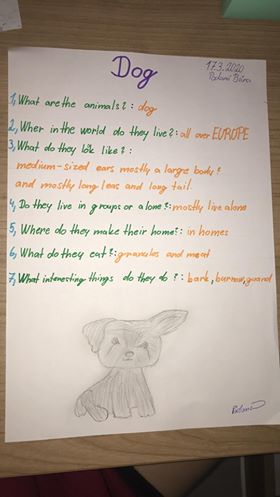 17.3.2020
Dog
1, What are the animals?: dog
2, Wher in the world do they live?: all over EUROPE
3, What do they lok like?:
medium-sized ears mostly a large body?
and mostly long legs and long tail.
4, Do they live in groups or alone?: mostly live alone
5, Where do they make their home?: in homes
6, What do they eat?: granules and meat
7, What interesting things do they do?: bark, burrow, guard